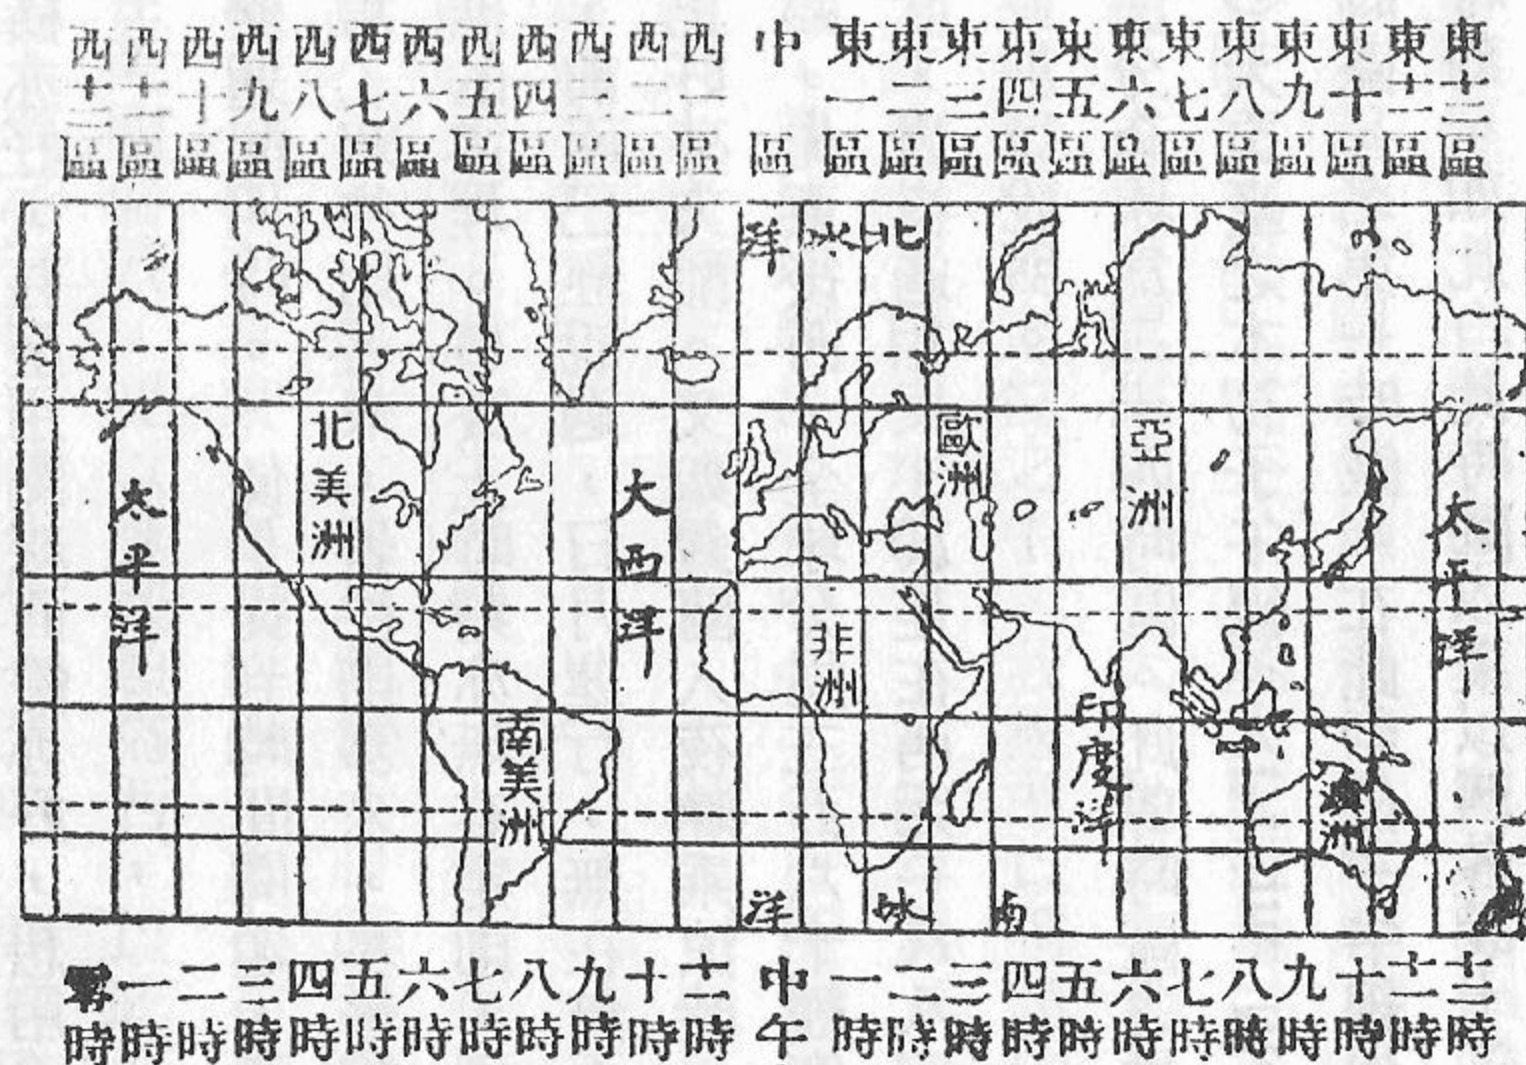 西十二區
西十一區
西十區
西九區
西八區
西七區
西六區
西五區
西四區
西三區
西二區
西一區
中區
東一區
東二區
東三區
東四區
東五區
東六區
東七區
東八區
東九區
東十區
東十一區
東十二區
北冰洋
太平洋
北美洲
大西洋
歐洲
亞洲
太平洋
非洲
南美洲
印度洋
澳洲
南冰洋
零時
一時
二時
三時
四時
五時
六時
七時
八時
九時
十時
十一時
中午
一時
二時
三時
四時
五時
六時
七時
八時
九時
十時
十一時
十二時